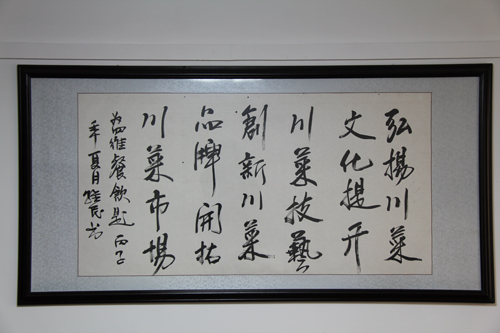 弘揚川菜
文化提升
川菜技藝
創新川菜
品牌開拓
川菜市場
為四維餐飲題丙子
季夏月